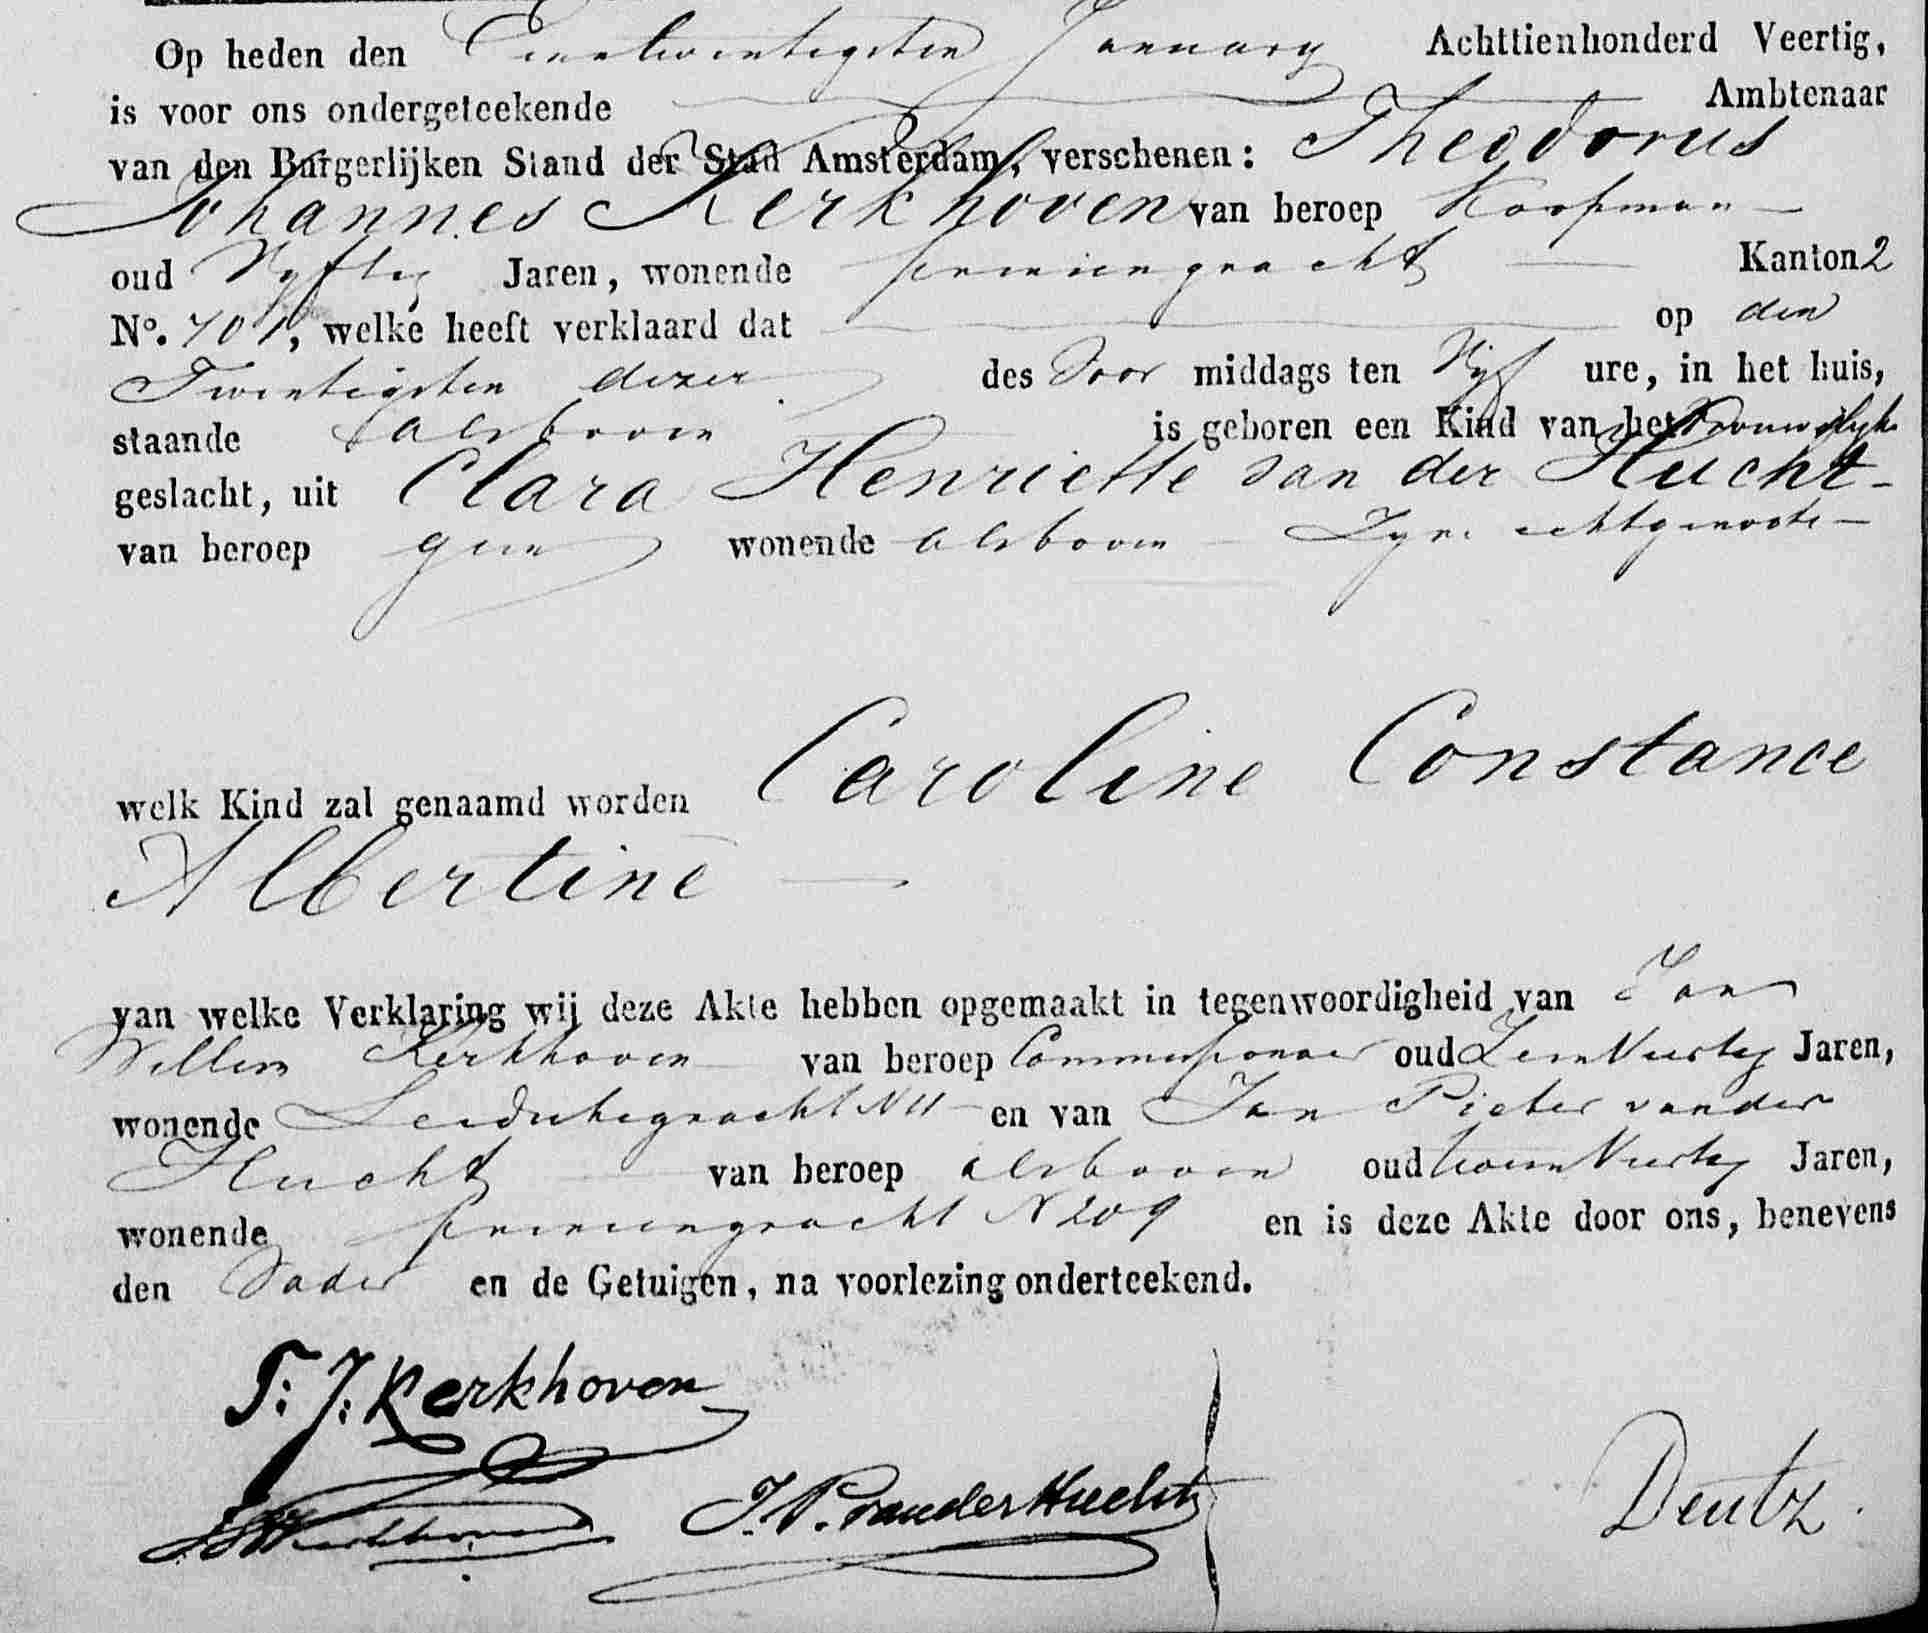 Op heden den Eenentwintigsten January Achttienhonderd Veertig,
is voor ons ondergeteekende Ambtenaar
van den Burgerlijken Stand der Stad Amsterdam, verschenen: Theodorus
Johannes Kerkhoven van beroep Koopman
oud Vyftig Jaren, wonende prinsengracht Kanton 2
No. 701, welke heeft verklaard dat op den
Twintigsten dezer des Voor middags ten Vyf ure, in het huis,
staande alsboven is geboren een Kind van het Vrouwelyke
geslacht, uit Clara Henriette van der Hucht
van beroep geen wonende alsboven Zyne echtgenoote
welk Kind zal genaamd worden Caroline Constance
Albertine
van welke Verklaring wij deze Akte hebben opgemaakt in tegenwoordigheid van Jan
Willem Kerkhoven van beroep Commissionair oud Jaren,
wonende Leidschegracht N 11 en van Jan Pieter van der
Hucht van beroep alsboven oud Jaren,
wonende prinsengracht N 209 en is deze Akte door ons, benevens
den Vader en de Getuigen, na voorlezing onderteekend.
T: J: Kerkhoven
Kerkhoven J. P. van der Hucht Deutz